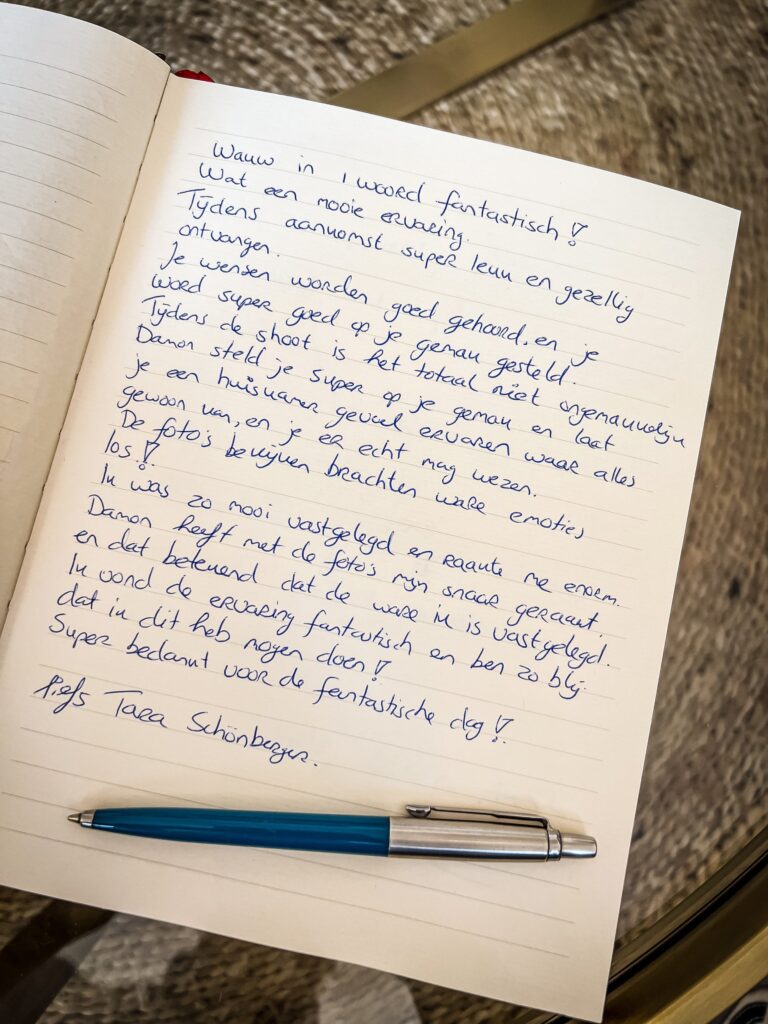 Wauw in 1 woord fantastisch!
Wat een mooie ervaring.
Tijdens aankomst super leuk en gezellig
ontvangen.
Je wensen worden goed gehoord, en je
word super goed op je gemak gesteld.
Tijdens de shoot is het totaal niet ongemakkelijk
Damon steld je super op je gemak en laat
je een huiskamer gevoel ervaren waar alles
gewoon kan, en je er echt mag wezen.
De foto's bekijken brachten ware emoties
los!
Ik was zo mooi vastgelegd en raakte me enorm.
Damon heeft met de foto's mijn snaar geraakt,
en dat betekend dat de ware ik is vastgelegd.
Ik vond de ervaring fantastisch en ben zo blij
dat ik dit heb mogen doen!
Super bedankt voor de fantastische dag!
liefs Tara Schönberger.